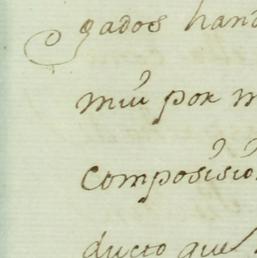 gados han
por
composisio
ducto que